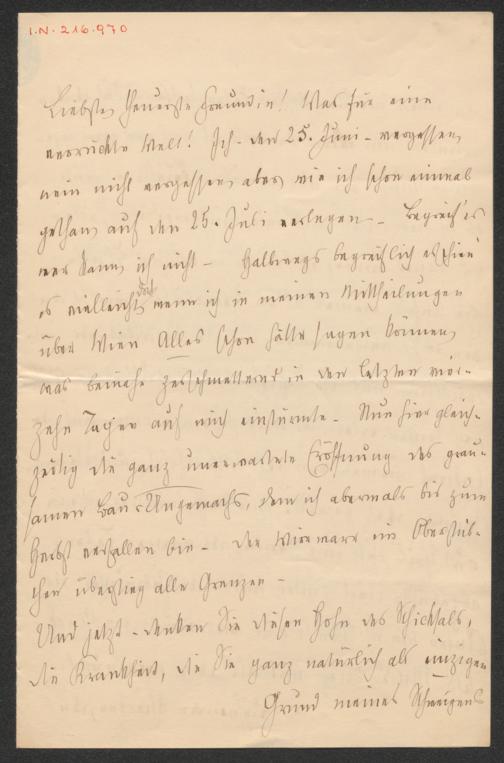 I.N. 216.970
Liebste, theuerste Freundin! Was für eine
verrückte Welt! Ich - den 25. Juni - vergessen,
nein nicht vergessen, aber, wie ich schon einmal
gethan, auf den 25. Juli verlegen - Begreif' es
wer kann, ich nicht - Halbwegs begreiflich erschien
es vielleicht doch, wenn ich in meinen Mittheilungen
über Wien Alles schon hätte sagen können,
was beinahe zerschmetternd in den letzten vier-
zehn Tagen auf mich einstürmte - Nun hier gleich-
zeitig die ganz unerwartete Eröffnung des grau-
samen Bau-Ungemachs, dem ich abermals bis zum
Herbst verfallen bin - der Wirrwarr im Oberstüb-
chen überstieg alle Grenzen -
Und jetzt - denken Sie diesen Hohn des Schicksals,
die Krankheit, die Sie ganz natürlich als einzigen
Grund meines Schweigens